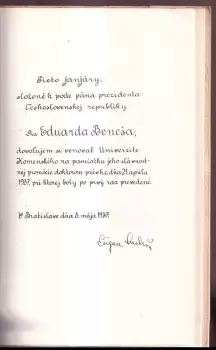 Tieto fanfáry,
složené k pocte pána prezidenta
Československej republiky
Dra Eduarda Beneša,
dovoľujem si venovať Univerzite
Komenského na pamiatku jeho slávnost-
nej promócie doktorom práv h.c. dňa 21. apríla
1937, pri ktorej boly po prvý raz prevedené.
V Bratislave dňa 8. mája 1937.
Eugen